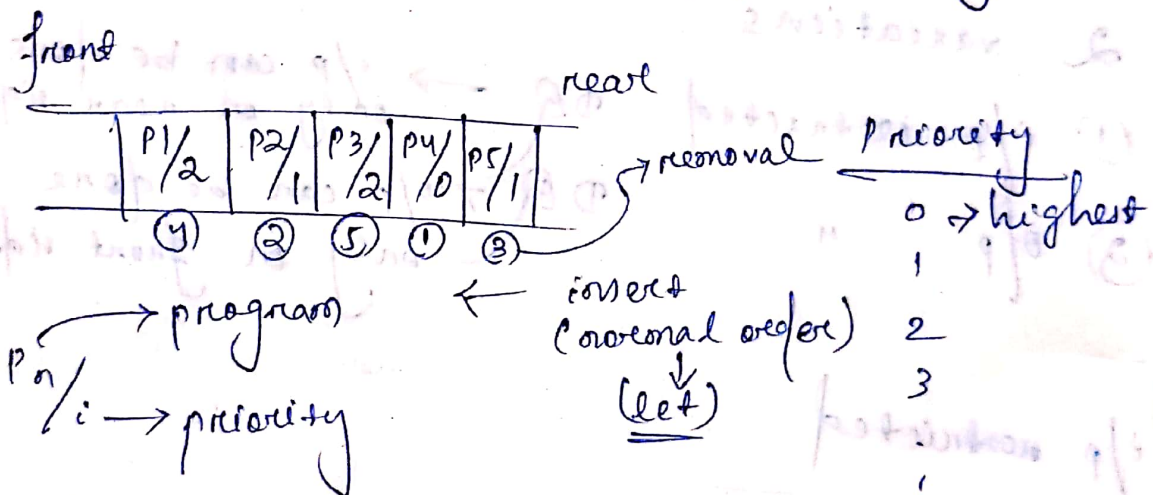 front
rear
P1/2 P2/1 P3/2 P4/0 P5/1
④ ② ⑤ ① ③
→ removal
Priority
0 → highest
1
2
3
← insert
(normal order)
↓
(let)
Pn/i
→ program
→ priority